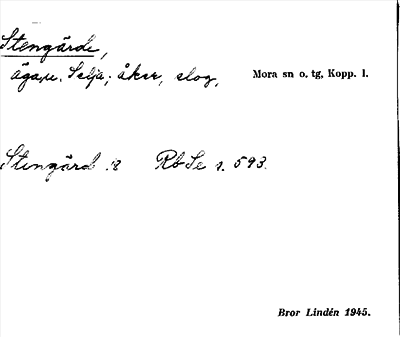 Stengärde,
ägare. Selja; åker, slog, Mora sn o. tg, Kopp. l.
Stengärd :s RbSe s. 593.
Bror Lindén 1945.